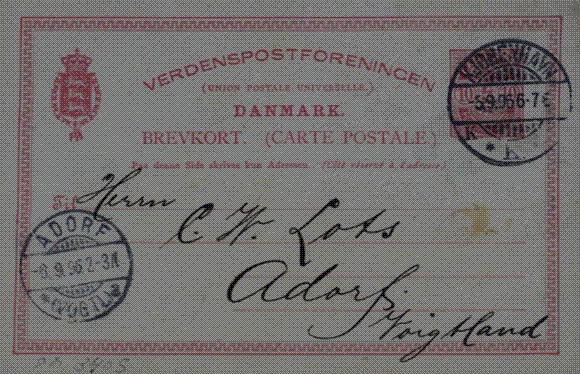 VERDENSPOSTFORENINGEN
(UNION POSTALE UNIVERSELLE.)
DANMARK.
BREVKORT. (CARTE POSTALE.)
Paa denne Side skrives kun Adressen. (Côté réservé à l'adresse.)
KJØBENHAVN
-5.9.96 6-7 E
K * K.
Til Herrn
C. W. Lots
Adorf.
Voigtland
ADORF
-6.9.96 2-3N
*(VOGTL)*